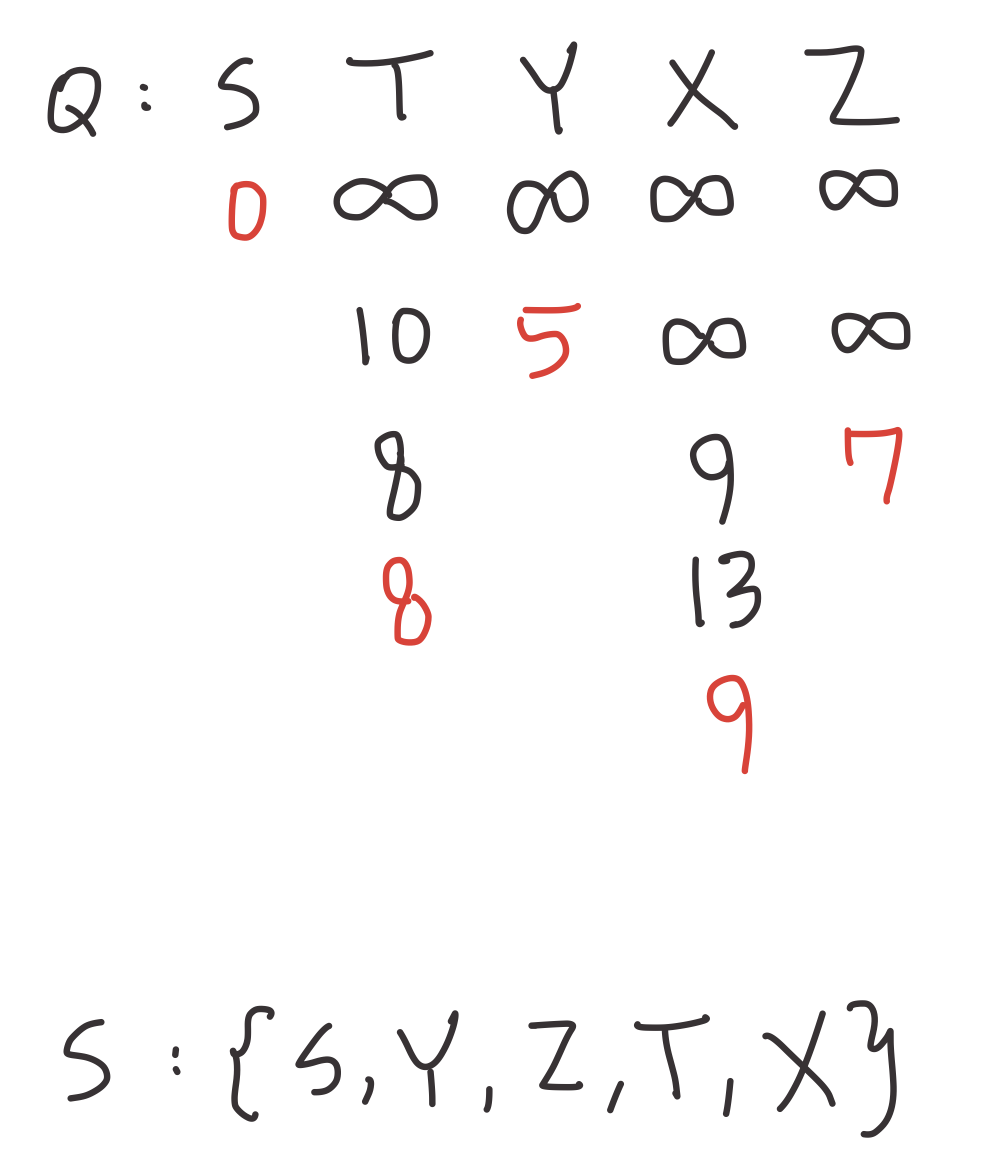 Q : S T Y X Z
0 ∞ ∞ ∞ ∞
10 5 ∞ ∞
8 9 7
8 13
9
S : {S, Y, Z, T, X}